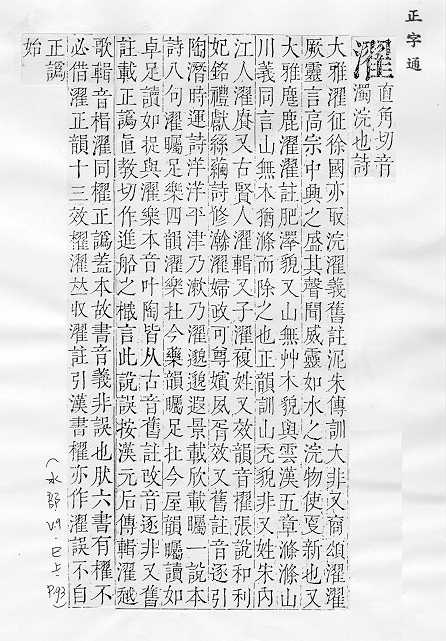 正字通
濯 直角切音
濁浣也詩
大雅濯征徐國亦取浣濯義舊註泥朱傳訓大非又商頌濯濯
厥靈言高宗中興之盛其聲聞威靈如水之浣物使更新也又
大雅麀鹿濯濯註肥澤貌又山無艸木貌與雲漢五章滌滌山
川義同言山無木猶滌而除之也正韻訓山禿貌非又姓朱内
江人濯賡又古賢人濯輯又子濯複姓又效韻音擢張說和利
妃銘禮獻絲繭詩修瀚濯婦政可尊嬪夙胥效又舊註音逐引
陶潛時運詩洋洋平津乃漱乃濯邈邈遐景載欣載矚一說本
詩八句濯矚足樂四韻濯樂在今藥韻矚足在今屋韻矚讀如
卓足讀如捉與濯樂本音叶陶皆从古音舊註改音逐非又舊
註載正譌直教切作進船之檝言此說誤按漢元后傳輯濯越
歌輯音楫濯同櫂正譌蓋本故書音義非誤也肰六書有櫂不
必借濯正韻十三效櫂濯𠀤收濯註引漢書櫂亦作濯誤不自
正譌
始
(水部 V9.巳上 P.93)